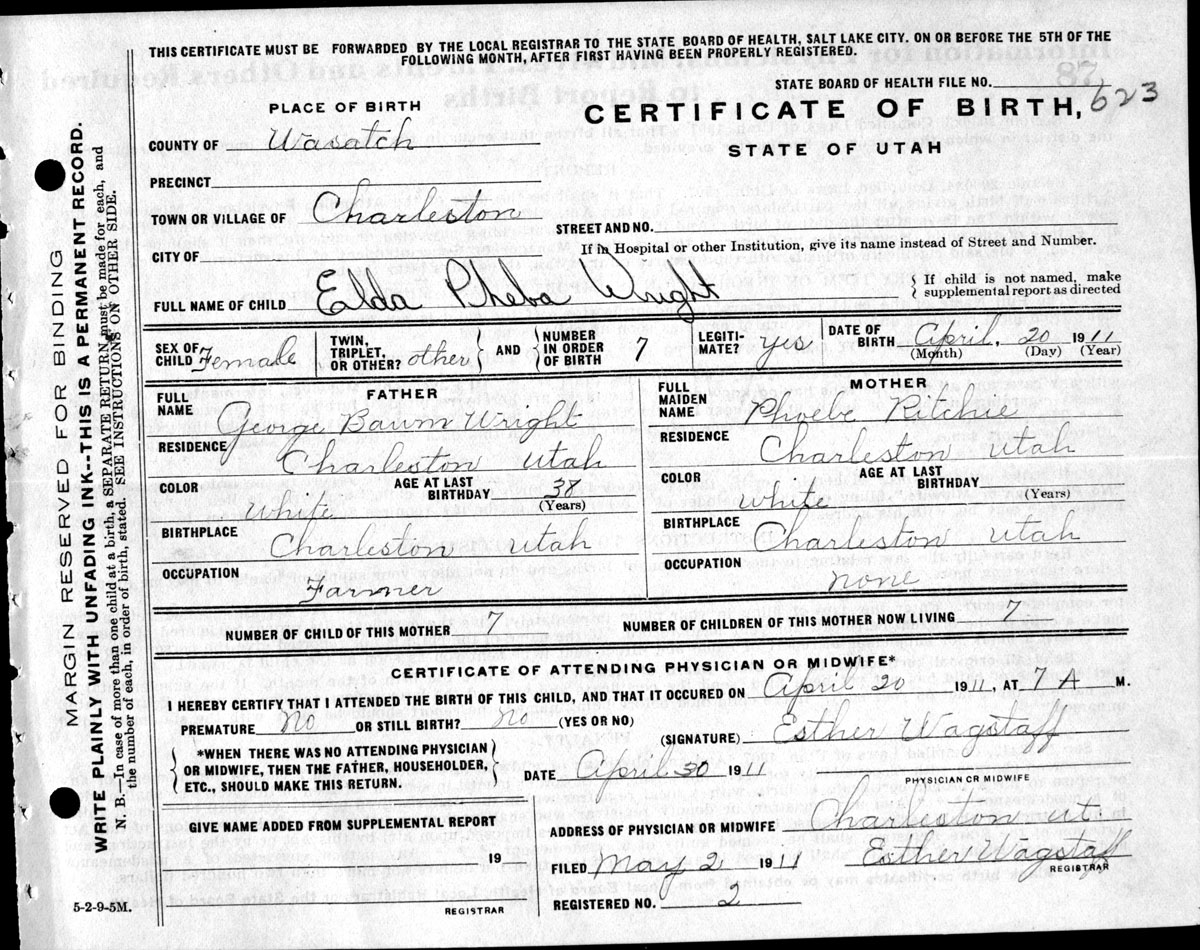 THIS CERTIFICATE MUST BE FORWARDED BY THE LOCAL REGISTRAR TO THE STATE BOARD OF HEALTH, SALT LAKE CITY. ON OR BEFORE THE 5TH OF THE
FOLLOWING MONTH, AFTER FIRST HAVING BEEN PROPERLY REGISTERED.
STATE BOARD OF HEALTH FILE NO.
87
PLACE OF BIRTH
CERTIFICATE OF BIRTH, 623
COUNTY OF Wasatch
STATE OF UTAH
PRECINCT
TOWN OR VILLAGE OF Charleston
STREET AND NO.
CITY OF
If in Hospital or other Institution, give its name instead of Street and Number.
FULL NAME OF CHILD Elda Pheba Wright
If child is not named, make
supplemental report as directed
SEX OF
CHILD Female
TWIN,
TRIPLET,
OR OTHER? other
AND
NUMBER
IN ORDER
OF BIRTH 7
LEGITI-
MATE? yes
DATE OF
BIRTH April, 20 1911
(Month) (Day) (Year)
FATHER
FULL
NAME George Baum Wright
RESIDENCE Charleston Utah
COLOR White
AGE AT LAST
BIRTHDAY 38
(Years)
BIRTHPLACE Charleston Utah
OCCUPATION Farmer
MOTHER
FULL
MAIDEN
NAME Phoebe Ritchie
RESIDENCE Charleston Utah
COLOR white
AGE AT LAST
BIRTHDAY
(Years)
BIRTHPLACE Charleston Utah
OCCUPATION none
NUMBER OF CHILD OF THIS MOTHER 7
NUMBER OF CHILDREN OF THIS MOTHER NOW LIVING 7
CERTIFICATE OF ATTENDING PHYSICIAN OR MIDWIFE*
I HEREBY CERTIFY THAT I ATTENDED THE BIRTH OF THIS CHILD, AND THAT IT OCCURED ON April 20 1911, AT 7 A M.
PREMATURE No OR STILL BIRTH? No (YES OR NO)
(SIGNATURE) Esther Wagstaff
PHYSICIAN OR MIDWIFE
*WHEN THERE WAS NO ATTENDING PHYSICIAN
OR MIDWIFE, THEN THE FATHER, HOUSEHOLDER,
ETC., SHOULD MAKE THIS RETURN.
DATE April 30 1911
GIVE NAME ADDED FROM SUPPLEMENTAL REPORT
19
REGISTRAR
ADDRESS OF PHYSICIAN OR MIDWIFE Charleston ut.
FILED May 2 1911 Esther Wagstaff
REGISTRAR
REGISTERED NO. 2
5-2-9-5M.
MARGIN RESERVED FOR BINDING
WRITE PLAINLY WITH UNFADING INK--THIS IS A PERMANENT RECORD.
N. B.—In case of more than one child at birth, a SEPARATE RETURN must be made for each, and
the number of each, in order of birth, stated. SEE INSTRUCTIONS ON OTHER SIDE.